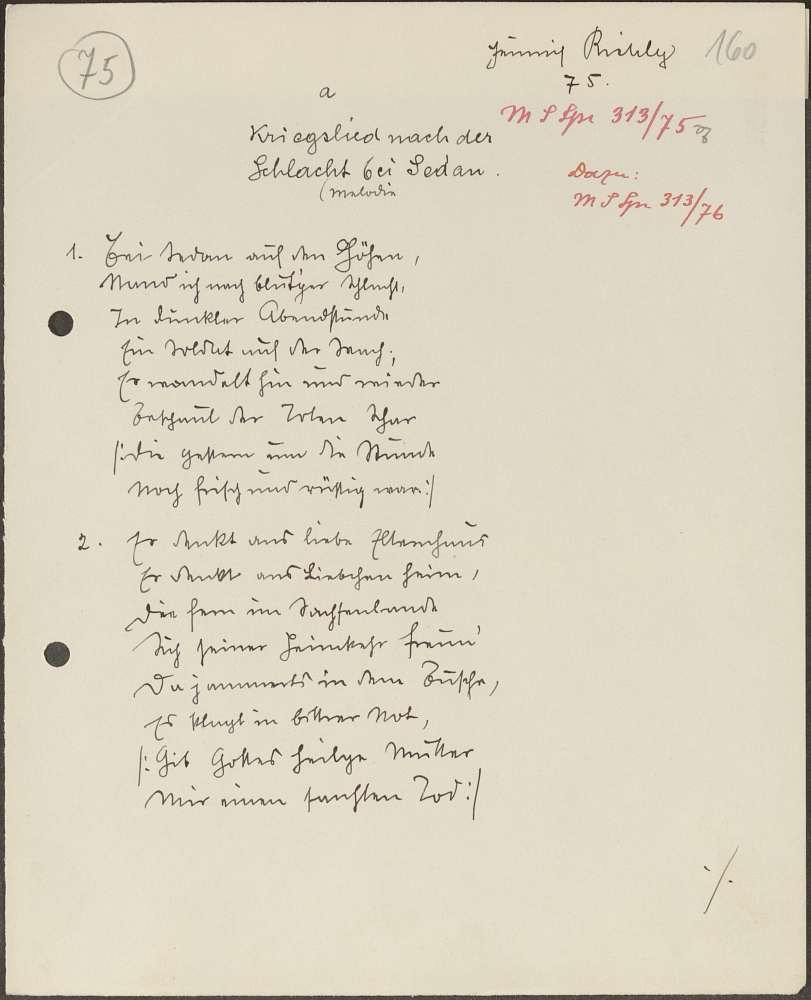 75
160
Heinrich Richly
75.
a
M S Spr 313/75
Kriegslied nach der
Schlacht bei Sedan.
(Melodie
Dazu:
M S Spr 313/76
1. Bei Sedan auf den Höhen,
Stand ich nach blut'ger Schlacht,
In dunkler Abendstunde
Ein Soldat auf der Wach;
Er wandelt hin und wieder
Beschaut der Toten Schar
/:Die gestern um die Stunde
Noch frisch und rüstig war:/
2. Er denkt ans liebe Elternhaus
Er denkt ans Liebchen heim,
Die fern im Sachsenlande
Sich seiner Heimkehr freun'
Da jammerts in dem Busche,
Es klagt in bittrer Not,
/: Gib Gottes heilge Mutter
Mir einen sanften Tod:/
./.